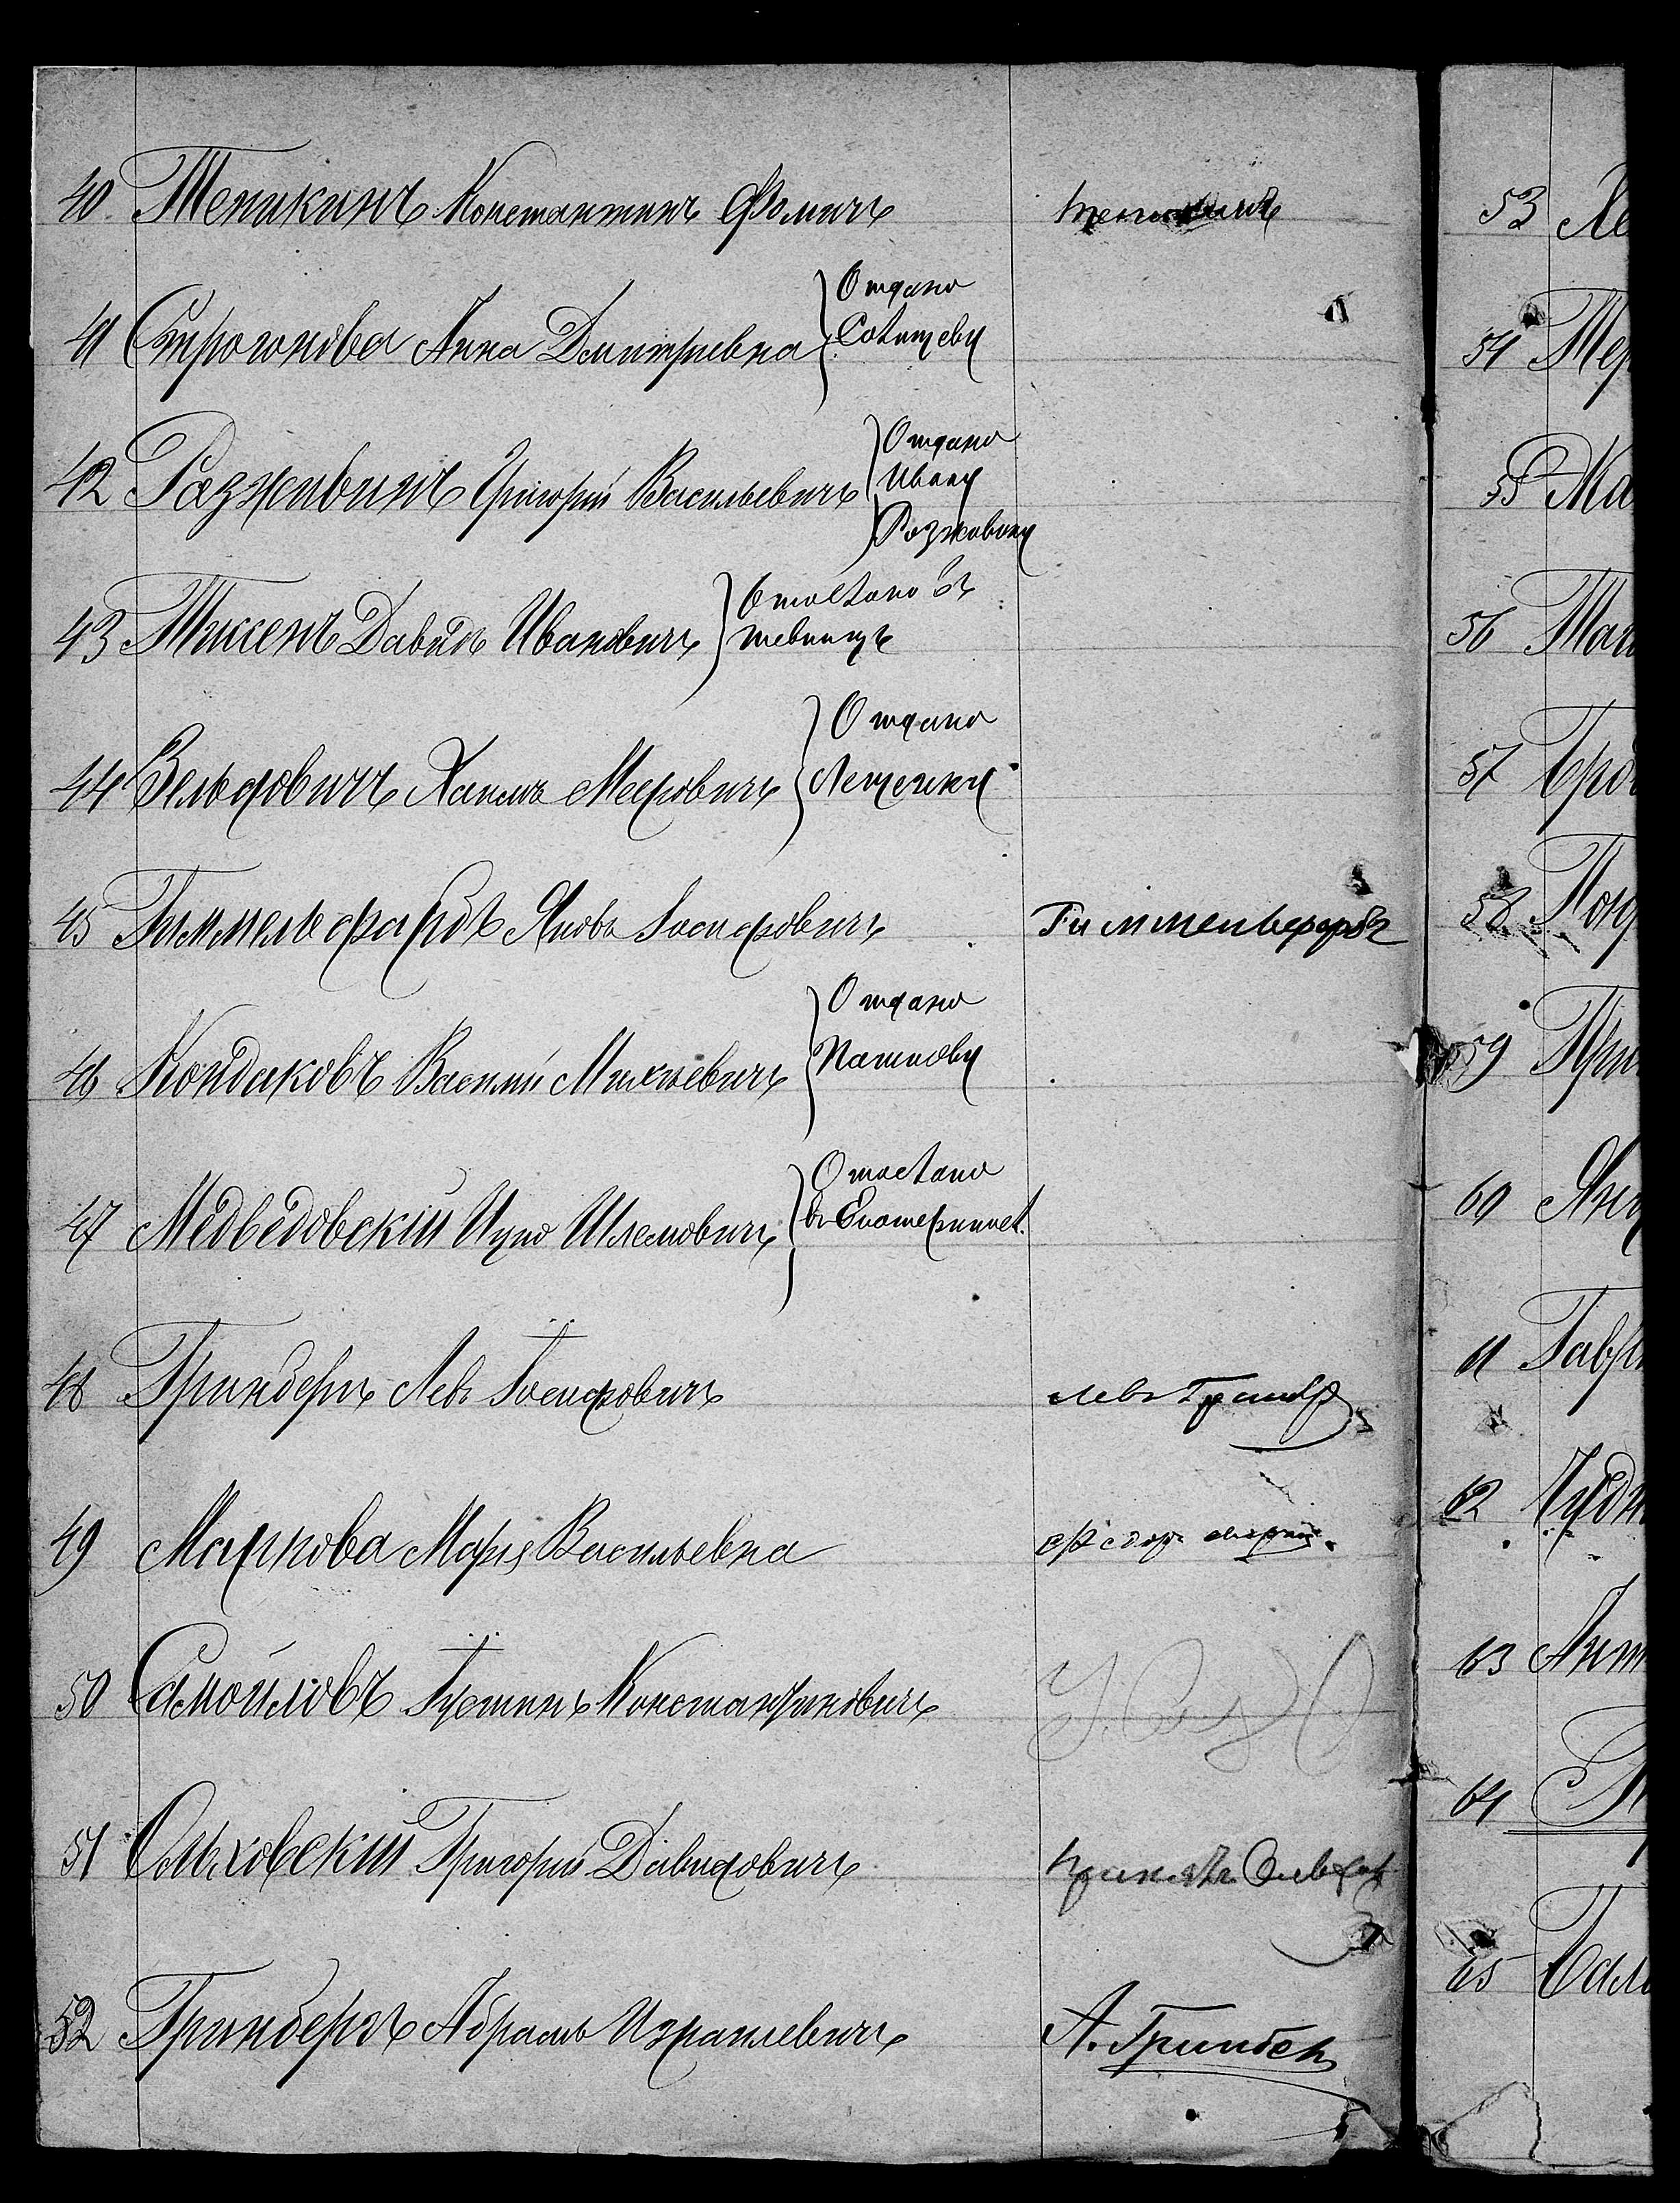 40 Теникинъ Константинъ Фомичъ Теникинъ
41 Строгонова Анна Дмитріевна
Отдано
42 Разживинъ Григорій Васильевичъ
Отдано
Ивану
Розживину
43 Тиссенъ Давидъ Ивановичъ
Отослано въ
44 Зельдовичъ Хаимъ Меeровичъ
Отдано
Лещенку
45 Гиммельфарбъ Яковъ Іосифовичъ Гиммельфарбъ
46 Кондаковъ Василій Михѣевичъ
Отдано
Пашкову
47 Медвѣдовскій Ицко Шлемовичъ
Отослано
въ Екатеринисл.
48 Гринберъ Левъ Іосифовичъ Левъ Гринбер
49 Маркова Марія Васильевна Федоръ
50 Самойловъ Іустинъ Константиновичъ
51 Ольховскій Григорій Давидовичъ
52 Гринбергъ Абрамъ Израилевичъ А. Гринбер
53 Ле
54 Тер
55 Ма
56
57
58
59 При
60 Ян
61 Гавр
62 Чудн
63 Ант
64
65